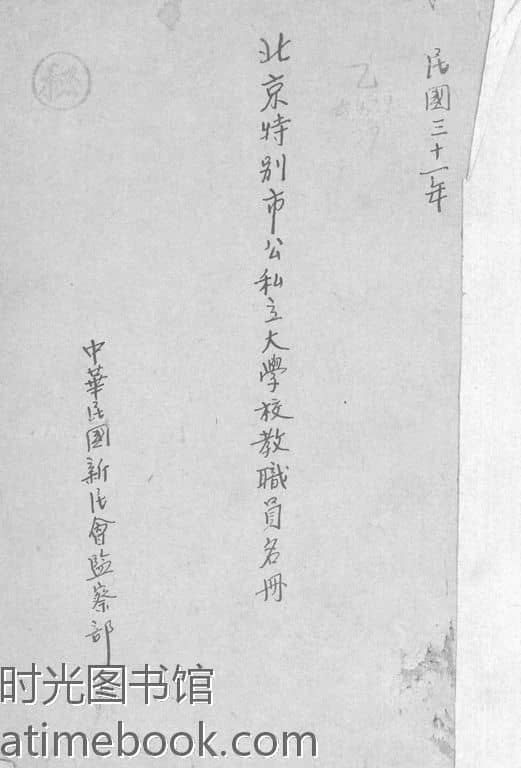 民國三十一年
北京特别市公私立大學校教職員名冊
中華民國新民會監察部
时光图书馆
atimebook.com